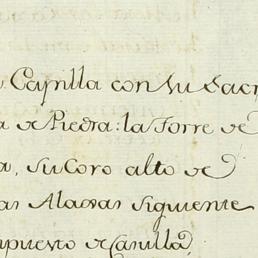 Capilla con su Sacr
a de Piedra: la Torre de
a, su Coro alto de
as Alaxas siguiente
mpuesto de Canilla